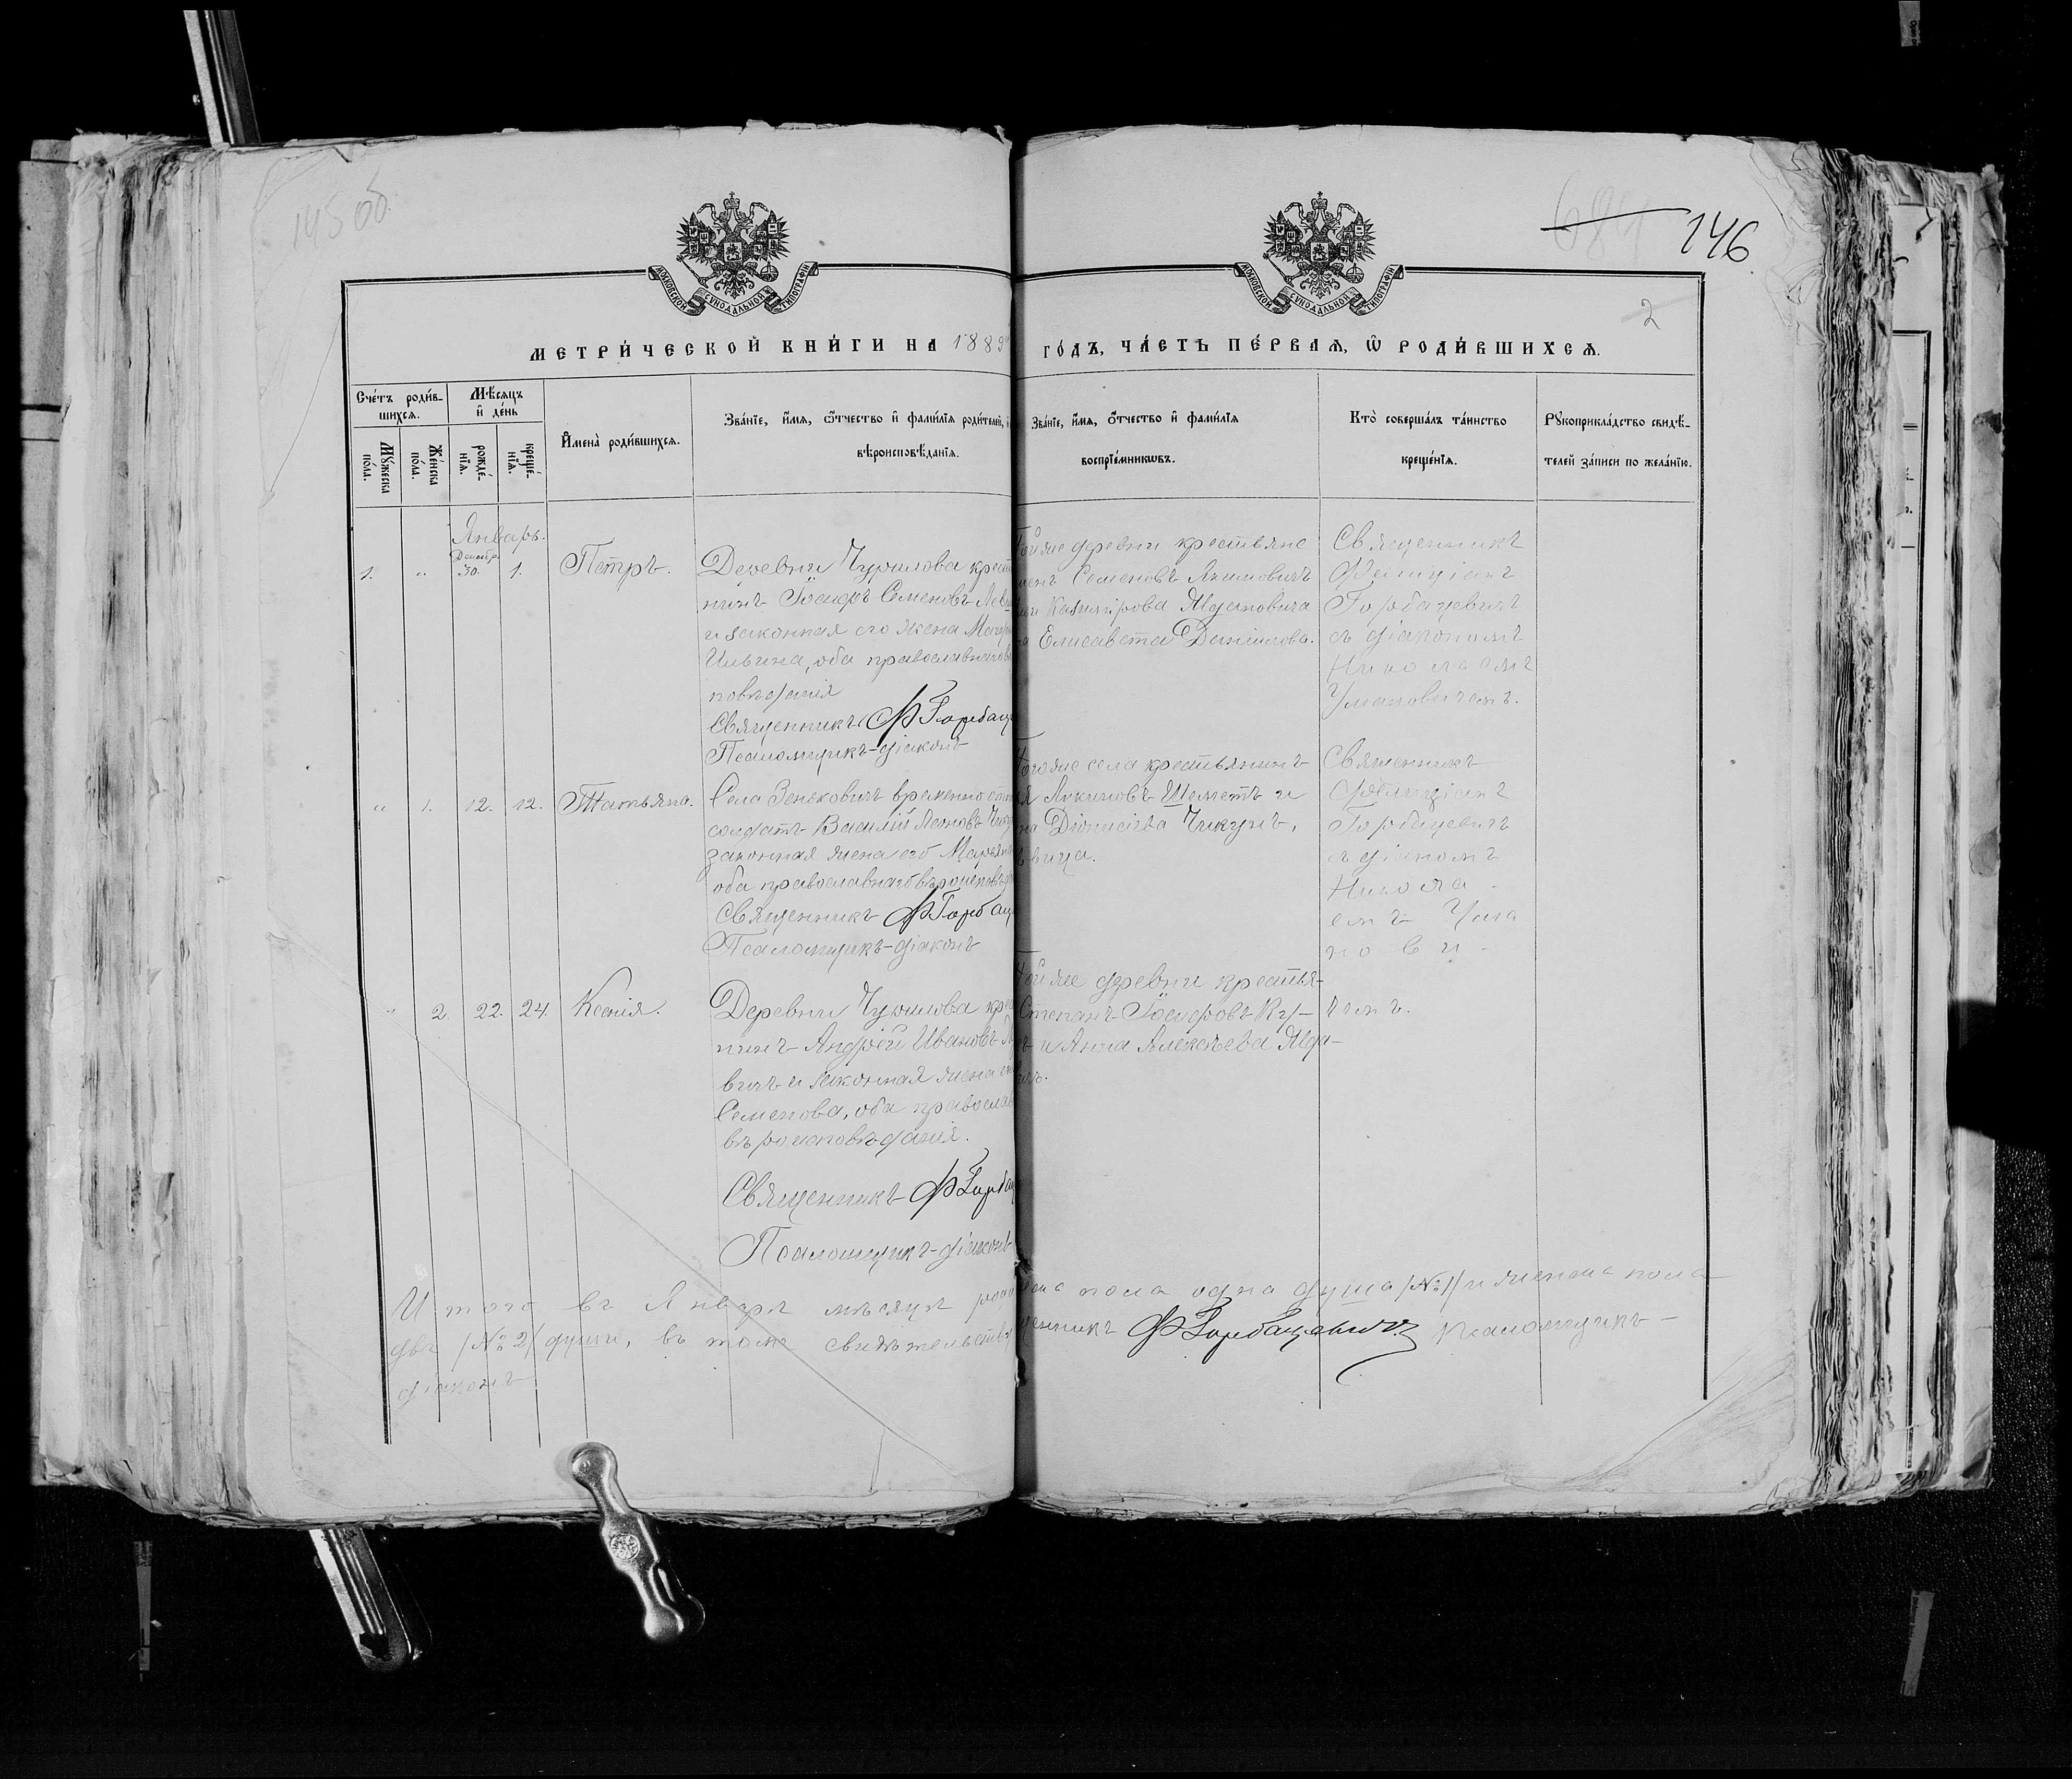 145 об.
684
146
2
МОСКОВСКОЙ СѴНОДАЛЬНОЙ ТИПОГРАФІИ
МОСКОВСКОЙ СѴНОДАЛЬНОЙ ТИПОГРАФІИ
МЕТРИ́ЧЕСКОЙ КНИ́ГИ НА 1889
ГО́ДЪ, ЧА́СТЬ ПЕ́РВАЯ, Ѿ РОДИ́ВШИХСЯ.
Сче́тъ роди́в-
шихся.
Мѣ́сяцъ
и҆ де́нь
Мꙋ́жеска по́ла.
Же́нска по́ла.
рожде́-
нїя.
креще́-
нїя.
И҆мена̀ роди́вшихся.
Зва́нїе, и҆́мя, ѻ҆́тчество и҆ фами́лїя роди́телей, и҆
вѣроисповѣ́данїя.
Зва́нїе, и҆́мя, ѻ҆́тчество и҆ фами́лїя
воспрїе́мникѡвъ.
Кто̀ соверша́лъ та́инство
креще́нїя.
Рꙋкоприкла́дство свидѣ́-
телей за́писи по жела́нїю.
Январь.
1. " Декабр. 30. 1. Петръ.
Деревни Чурилова крест
нинъ Іосифъ Семеновъ
и законная его жена
Ильина, оба православнаго
повѣданія
Священникъ Ф Горбац
Псаломщикъ-діаконъ
Той же деревни крестьяне
Семеновъ Якимовичъ
Казимірова Жданович
Елисавета Даниилова.
Священникъ
Фелиціанъ
Горбацевичъ
съ діакономъ
Николаемъ
Улановичемъ.
" 1. 12. 12. Татьяна.
Села Зеньковичъ временно
солдатъ Василій Леоновъ
законная жена его Марья
оба православнаго вѣроисповѣд
Священникъ Ф Горбац
Псаломщикъ-діаконъ
Того же села крестьянинъ
Якимовъ Шеметъ и
Діонисіева Чикунъ,
вица.
Священникъ
Фелиціанъ
Горбацевичъ
съ діакономъ
Никола-
емъ Ула
нови-
чемъ.
" 2. 22. 24. Ксенія.
Деревни Чурилова крес
нинъ Андрей Ивановъ
вичъ и законная жена
Семенова, оба православ
вѣроисповѣданія.
Священникъ Ф Горбац
Псаломщикъ-діаконъ
Той же деревни крестья-
Степанъ Іосифовъ
и Анна Алексѣева Жда-
ичъ.
Итого въ Январѣ мѣсяцѣ
пола одна душа /№ 1/ и женска пола
двѣ /№ 2/ души, въ томъ свидѣтельств
щенникъ Ф Горбацевичъ Псаломщикъ-
діаконъ